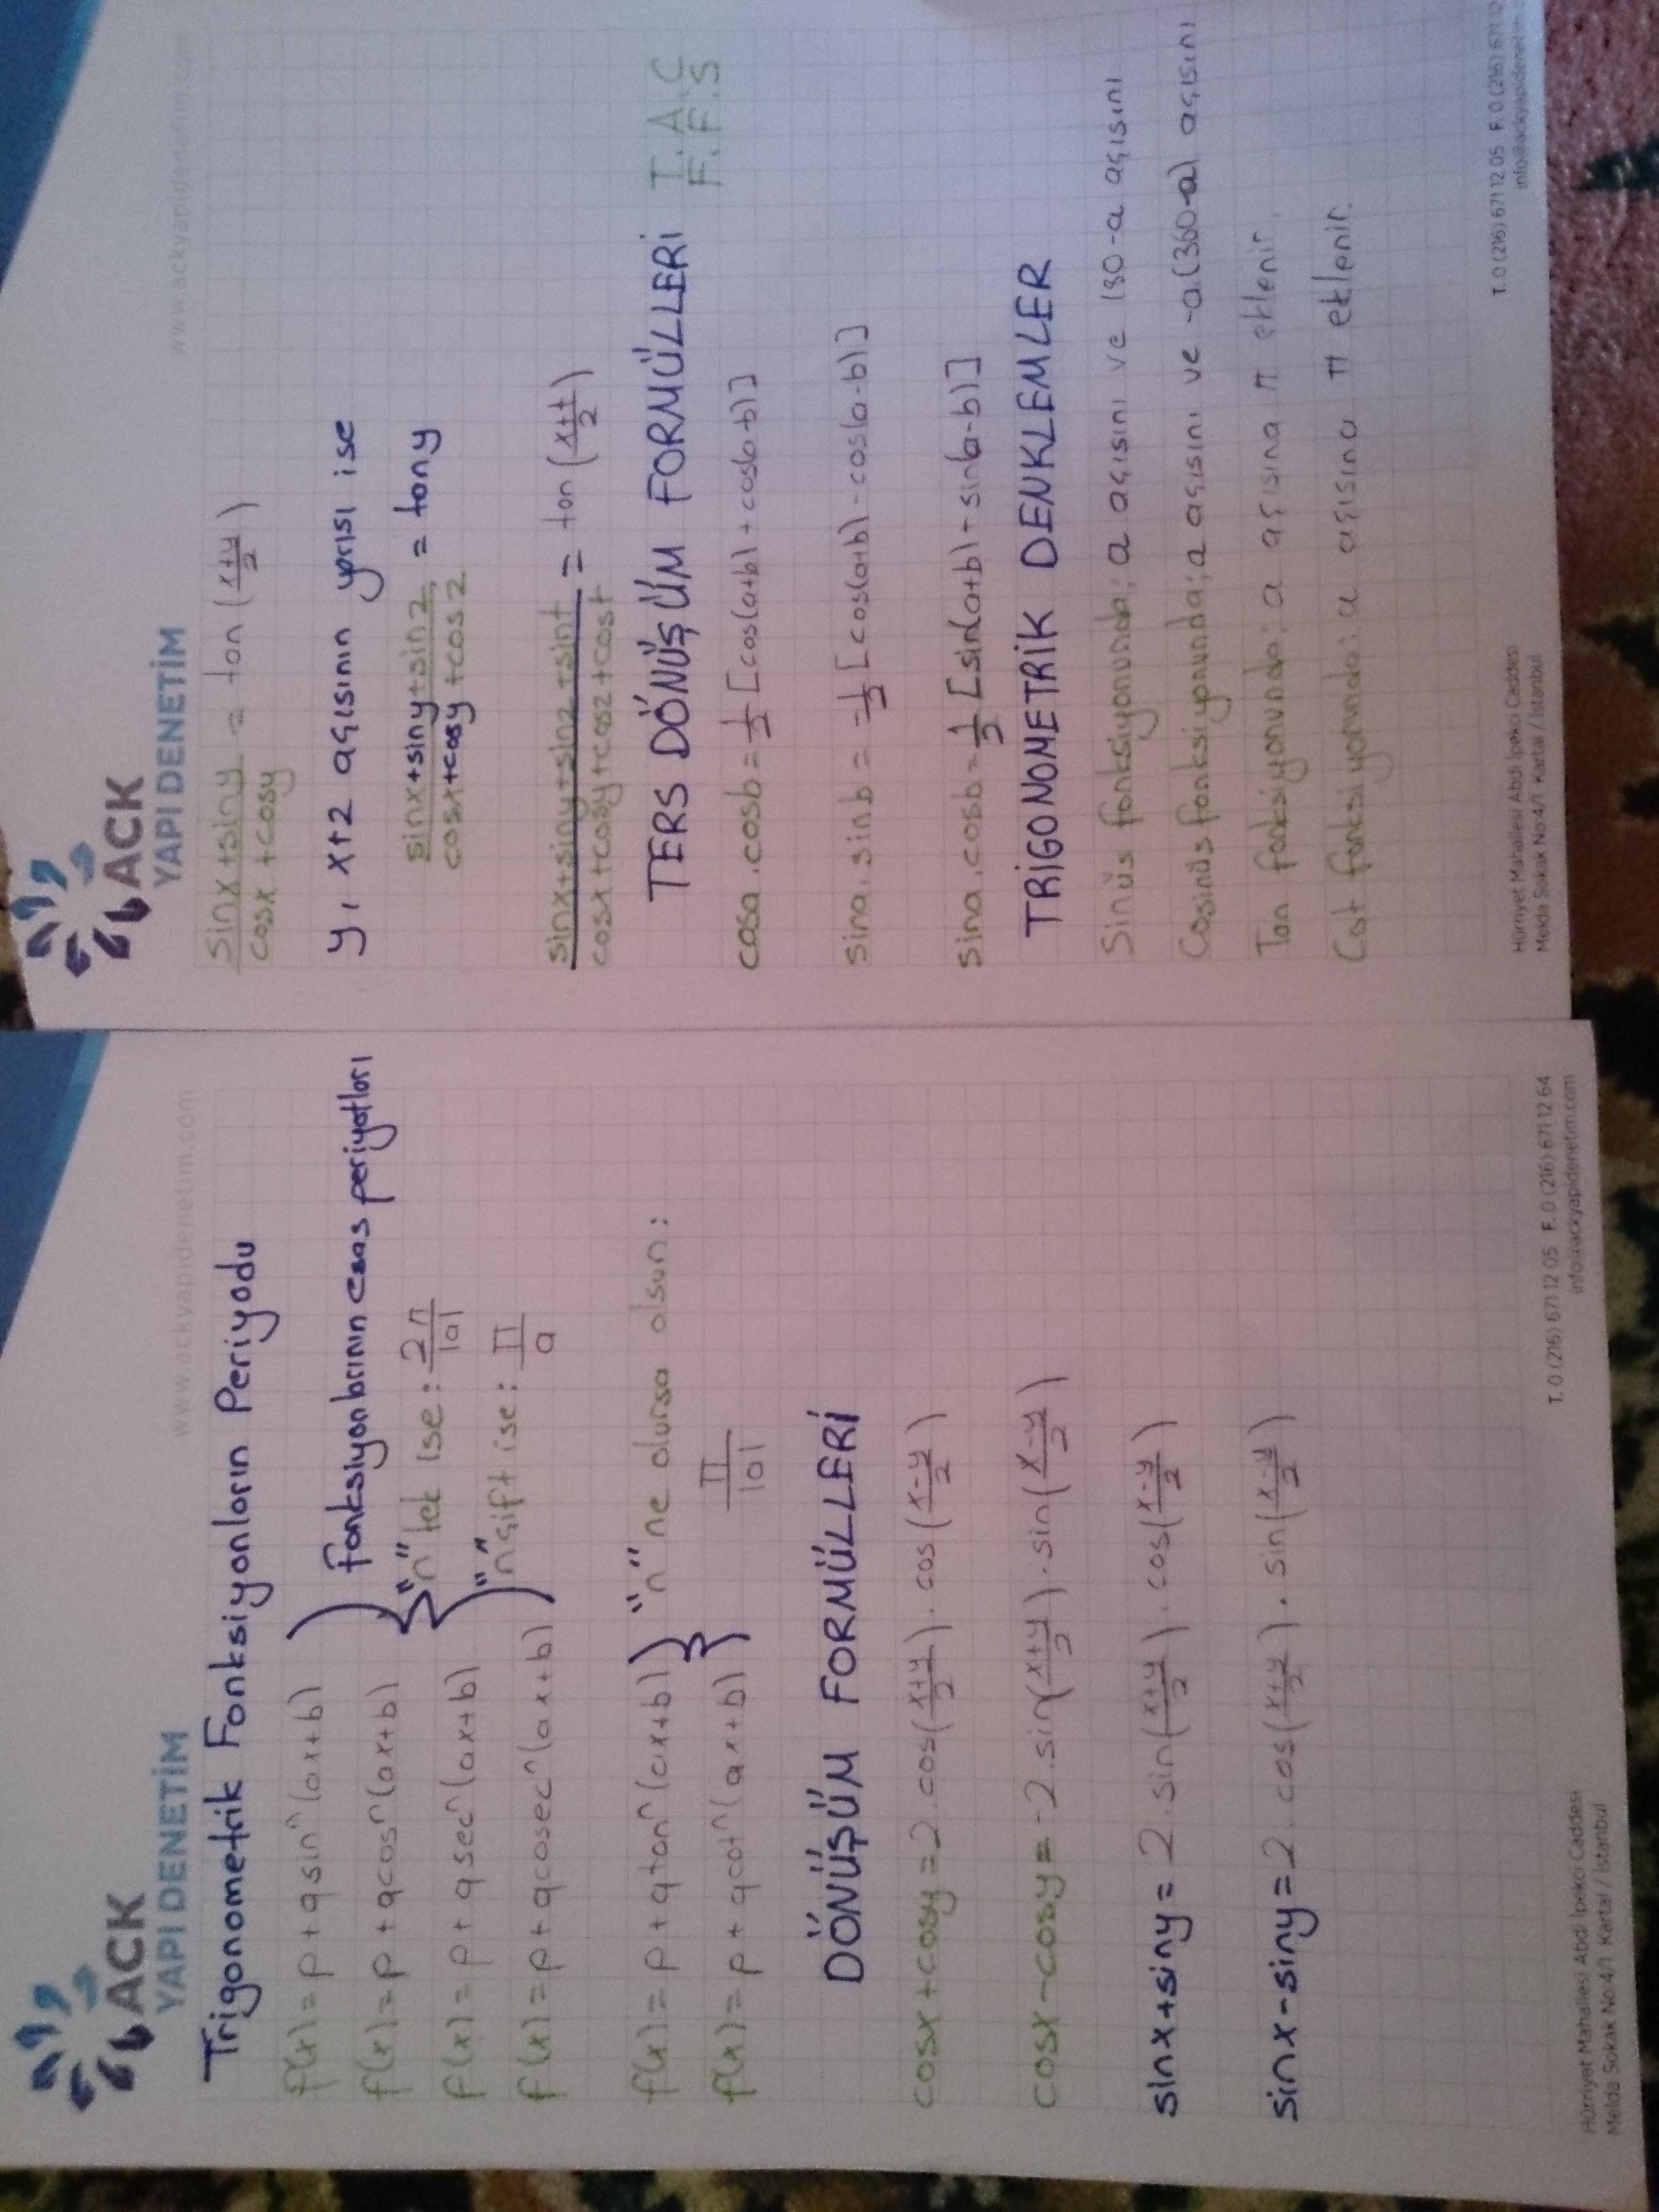 ACK
YAPI DENETİM
www.ackyapidenetim.com
Trigonometrik Fonksiyonların Periyodu
f(x) = p + q sinⁿ (ax+b)
f(x) = p + q cosⁿ (ax+b)
f(x) = p + q secⁿ (ax+b)
f(x) = p + q cosecⁿ (ax+b)
fonksiyonlarının esas periyotları
"n" tek ise : 2π/|a|
"n" çift ise : π/a
f(x) = p + q tanⁿ (ax+b)
f(x) = p + q cotⁿ (ax+b)
"n" ne olursa olsun :
π/|a|
DÖNÜŞÜM FORMÜLLERİ
cosx+cosy = 2.cos((x+y)/2).cos((x-y)/2)
cosx-cosy = -2.sin((x+y)/2).sin((x-y)/2)
sinx+siny = 2.sin((x+y)/2).cos((x-y)/2)
sinx-siny = 2.cos((x+y)/2).sin((x-y)/2)
Hürriyet Mahallesi Abdi İpekci Caddesi
Melda Sokak No:4/1 Kartal / İstanbul
T. 0 (216) 671 12 05 F. 0 (216) 671 12 64
info@ackyapidenetim.com
ACK
YAPI DENETİM
www.ackyapidenetim.com
(sinx+siny)/(cosx+cosy) = tan((x+y)/2)
y, x+z açısının yarısı ise
(sinx+siny+sinz)/(cosx+cosy+cosz) = tany
(sinx+siny+sinz+sint)/(cosx+cosy+cosz+cost) = tan((x+t)/2)
TERS DÖNÜŞÜM FORMÜLLERİ T.A.Ç
F.F.S
cosa.cosb = 1/2 [cos(a+b) + cos(a-b)]
sina.sinb = -1/2 [cos(a+b) - cos(a-b)]
sina.cosb = 1/2 [sin(a+b) + sin(a-b)]
TRİGONOMETRİK DENKLEMLER
Sinüs fonksiyonunda; a açısını ve 180-a açısını
Cosinüs fonksiyonunda; a açısını ve -a(360-a) açısını
Tan fonksiyonunda: a açısına π eklenir.
Cot fonksiyonunda: a açısına π eklenir.
Hürriyet Mahallesi Abdi İpekci Caddesi
Melda Sokak No:4/1 Kartal / İstanbul
T. 0 (216) 671 12 05 F. 0 (216) 671 12